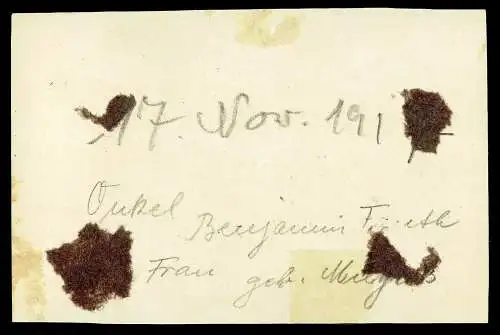 17. Nov. 191
Onkel Benjamin
Frau geb.